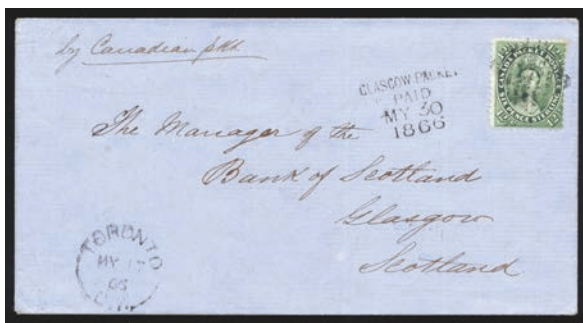 by Canadian pkt
GLASGOW PACKET
PAID
MY 30
1866
The Manager of the
Bank of Scotland
Glasgow
Scotland
TORONTO
MY
66
C.W.